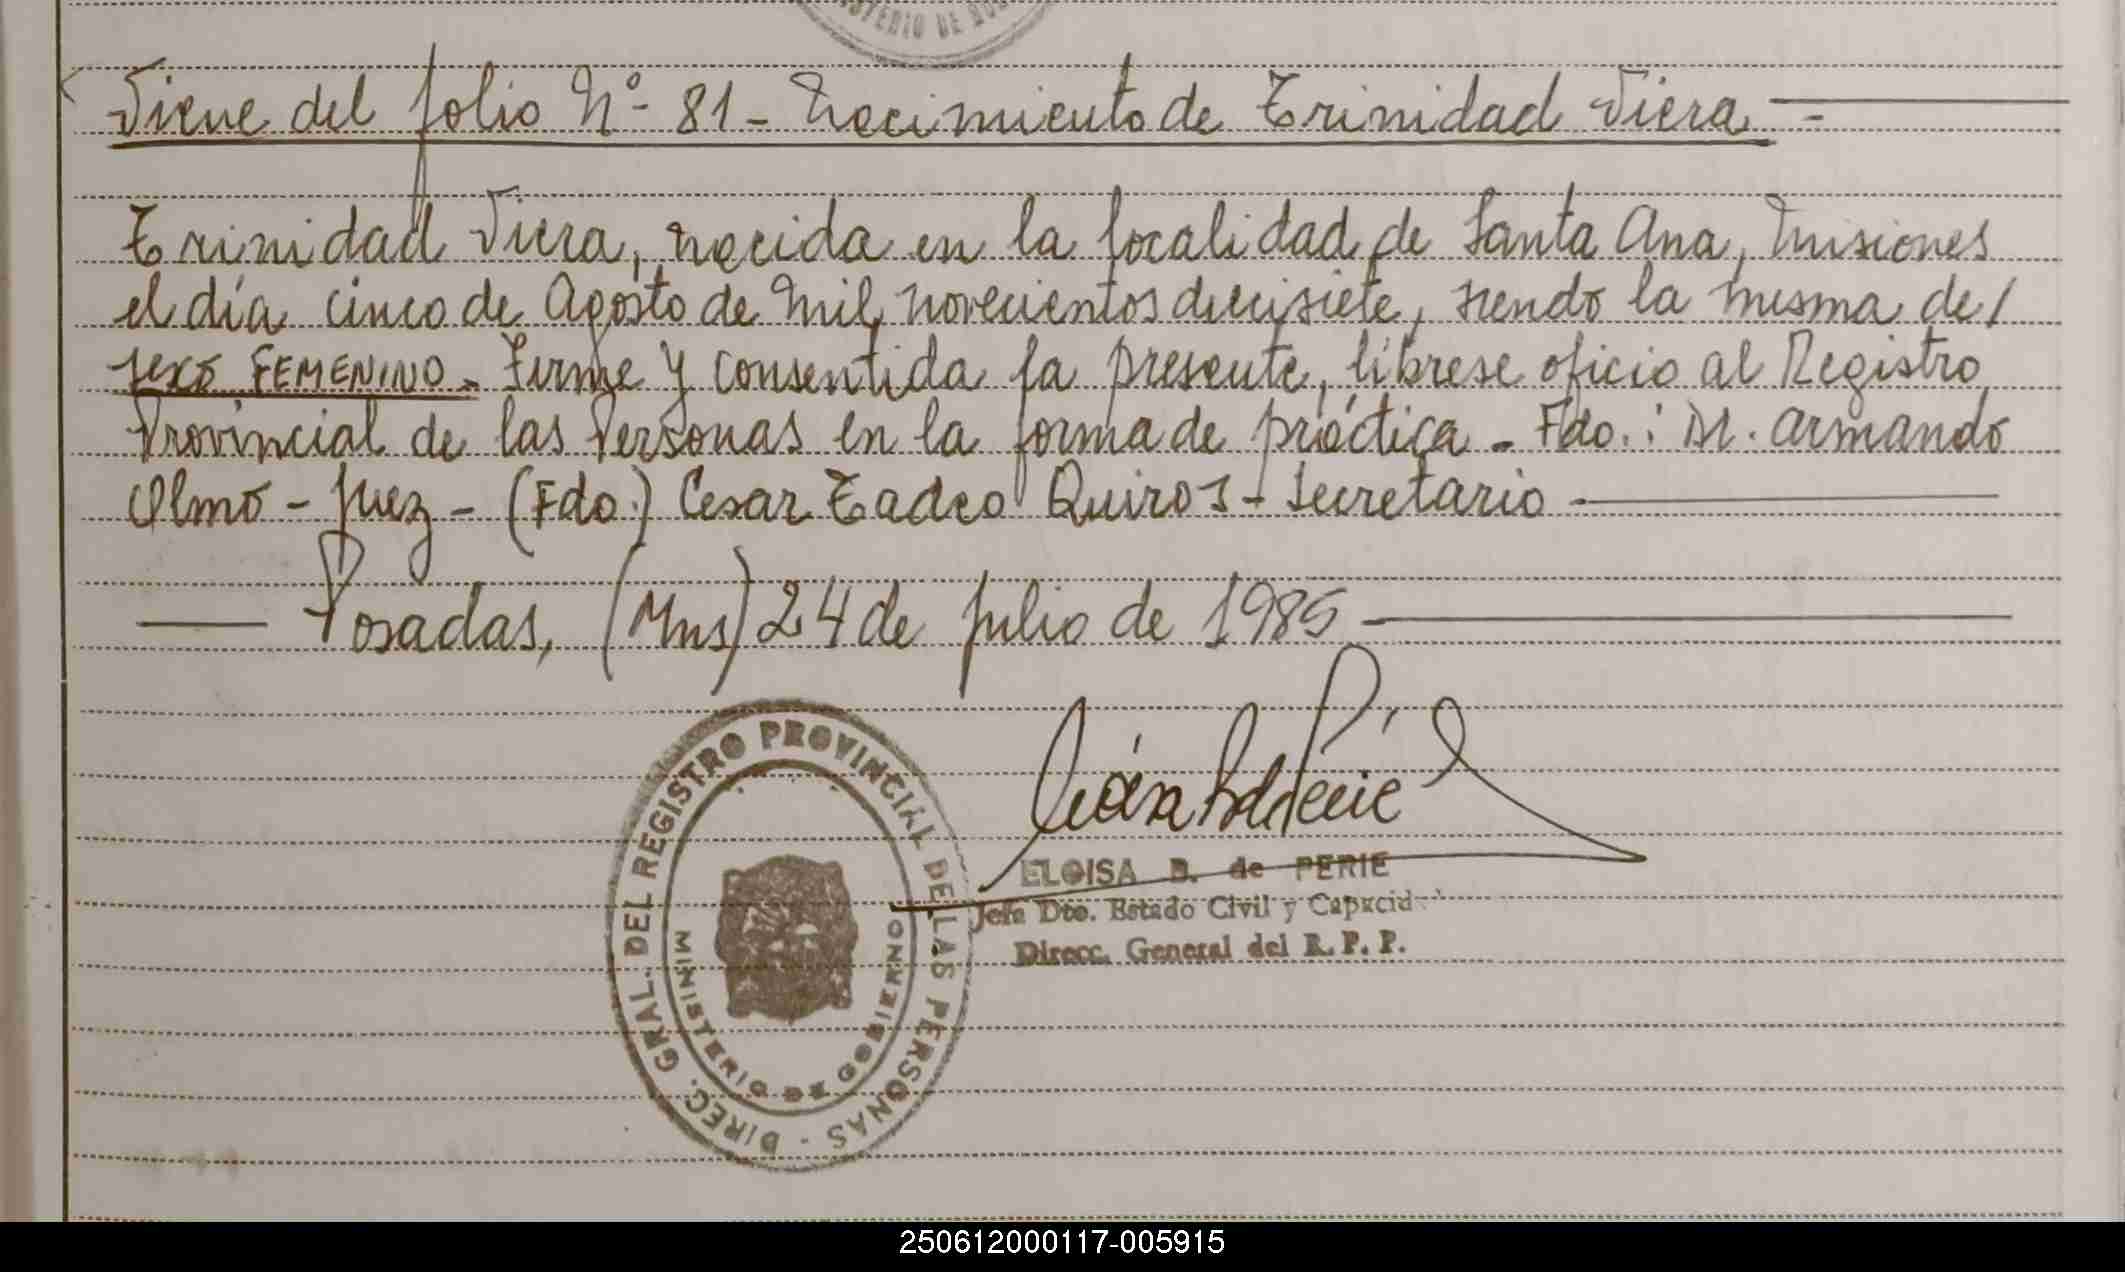 MINISTERIO DE GOB
Viene del folio Nº 81 - Nacimiento de Trinidad Viera -
Trinidad Viera, nacida en la localidad de Santa Ana, Misiones
el día cinco de Agosto de mil novecientos diecisiete, siendo la misma de/
sexo FEMENINO. Firme y consentida la presente, líbrese oficio al Registro
Provincial de las Personas en la forma de práctica. Fdo.: Dr. Armando
Olmo - Juez - (Fdo.) Cesar Tadeo Quiros - Secretario -
Posadas, (Mns) 24 de Julio de 1985
DIREC. GRAL. DEL REGISTRO PROVINCIAL DE LAS PERSONAS -
MINISTERIO DE GOBIERNO
ELOISA B. de PERIE
Jefa Dto. Estado Civil y Capacid
Direcc. General del R. P. P.
250612000117-005915